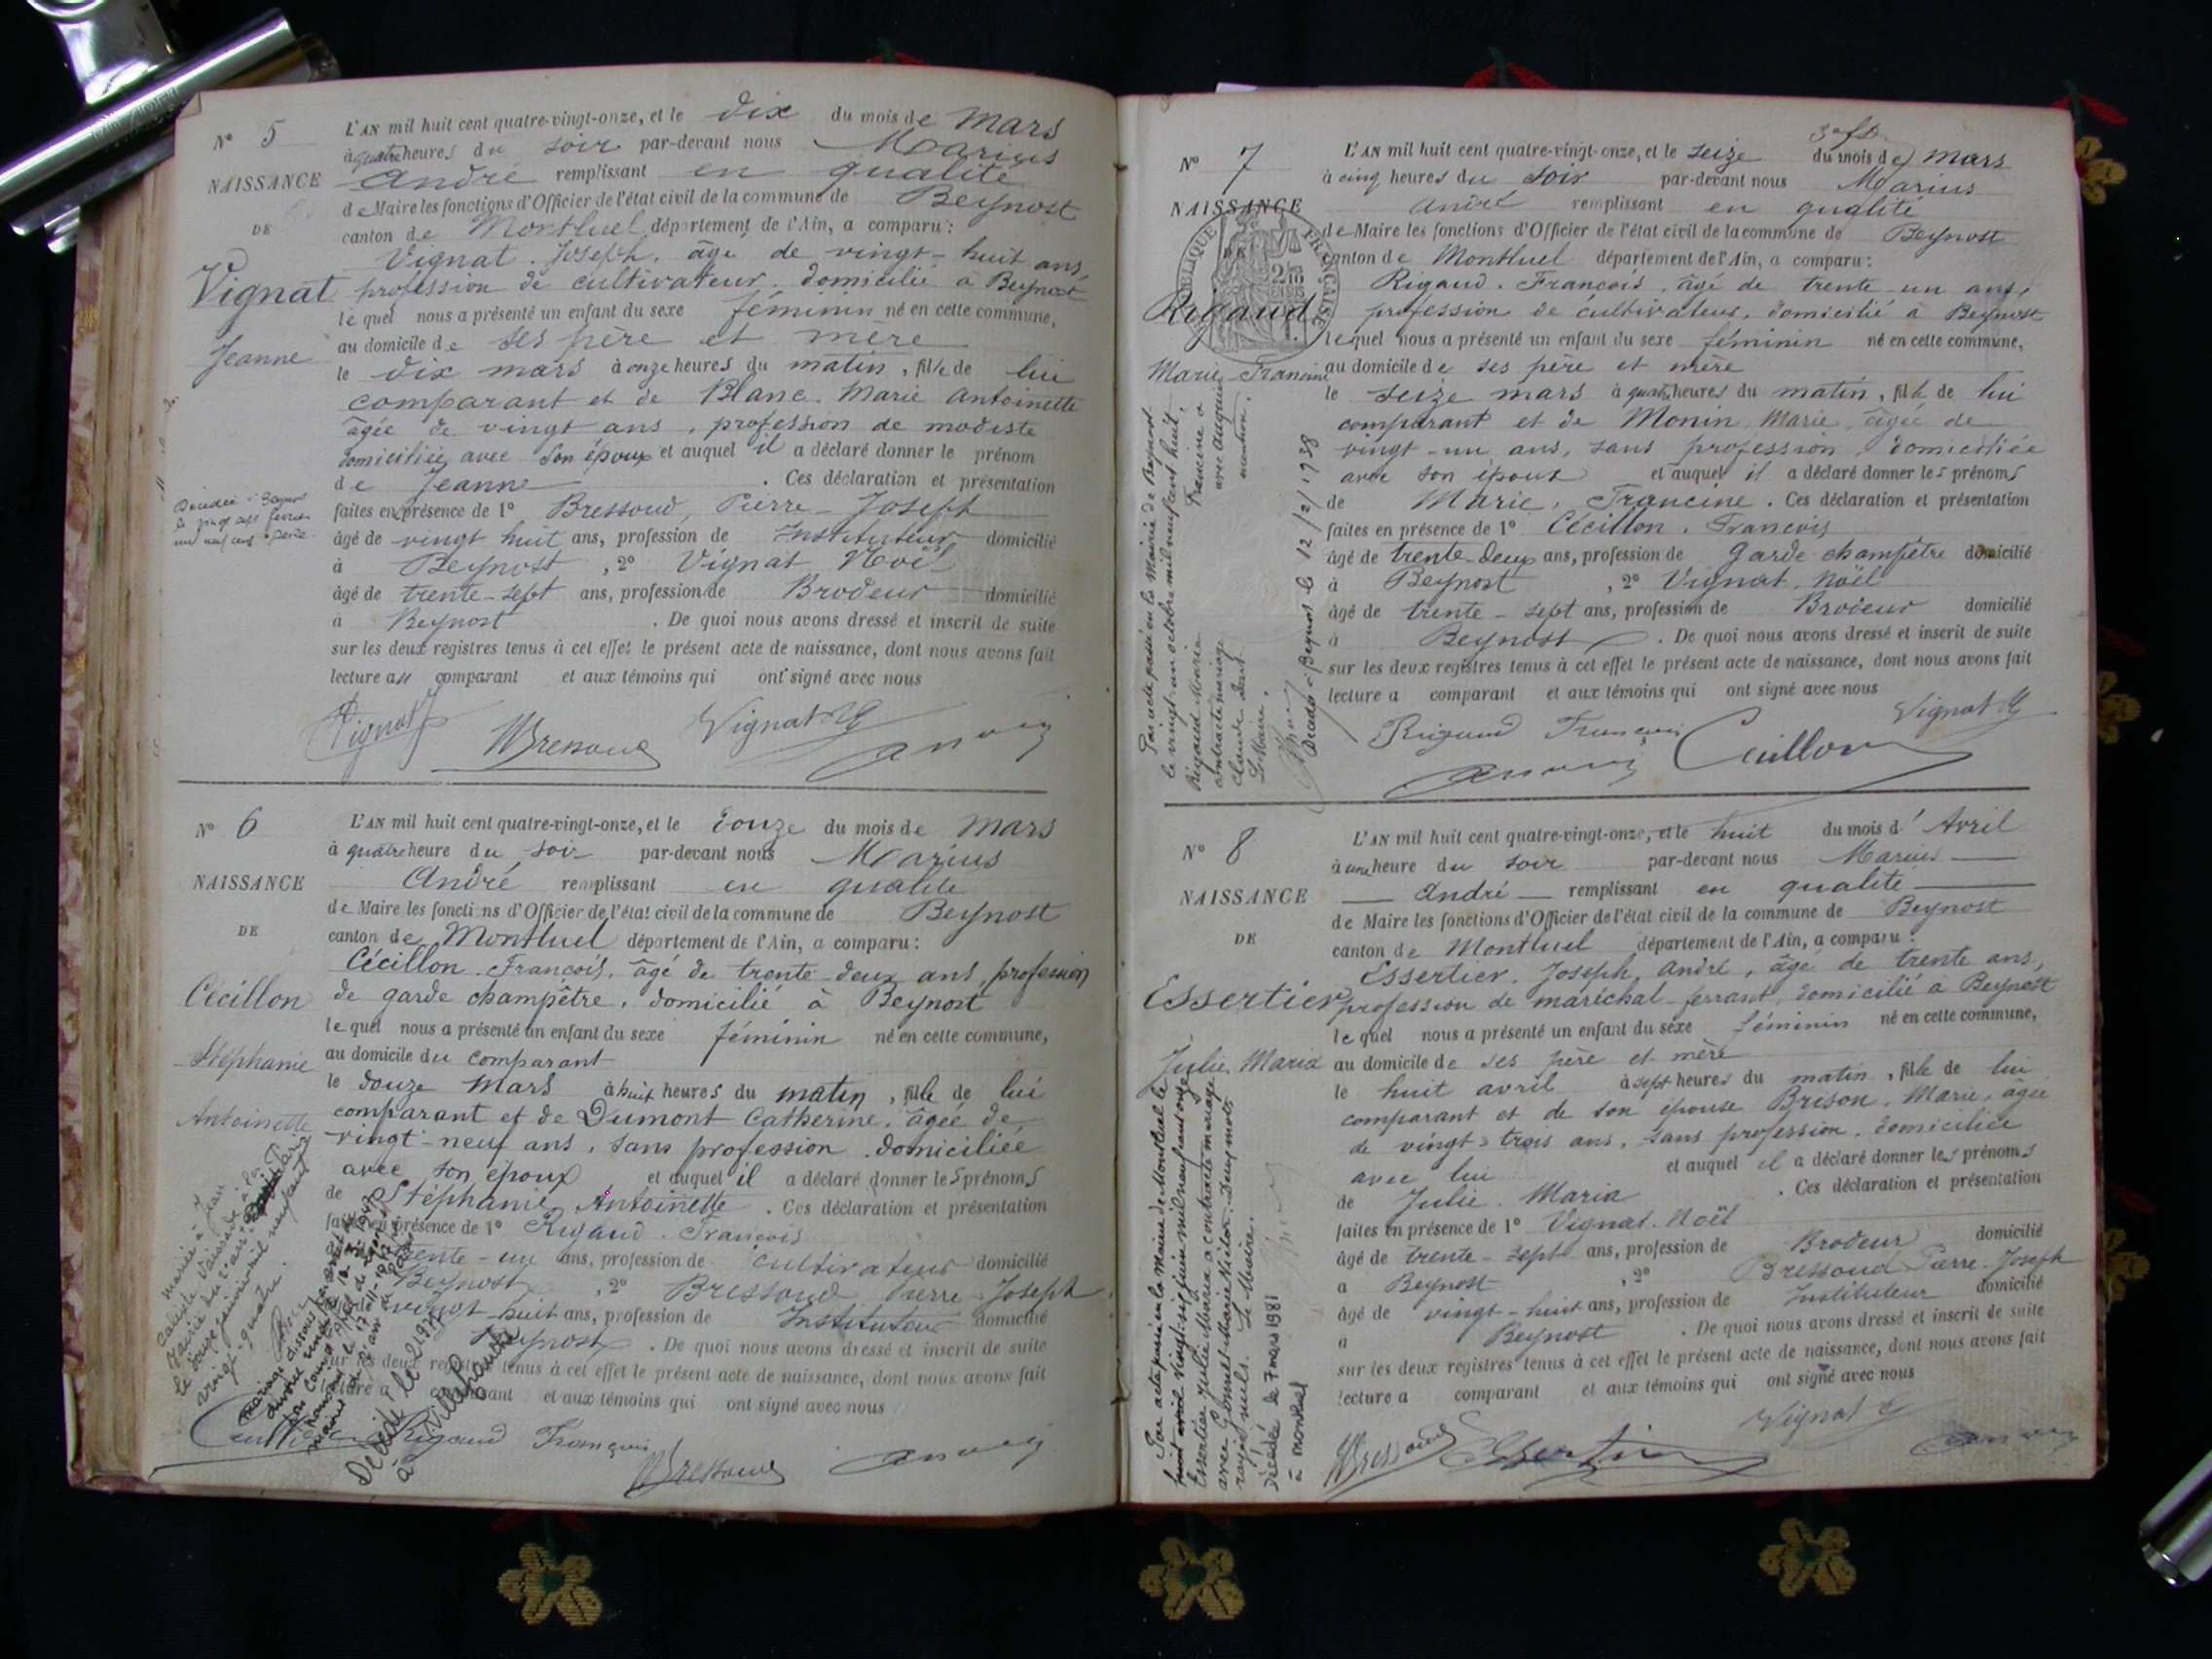 N° 5
NAISSANCE
DE
Vignat
Jeanne
Décédée à Beynost
le vingt sept février
L'AN mil huit cent quatre-vingt-onze, et le dix du mois de Mars
à quatre heures du soir par-devant nous Marius
André remplissant en qualité
de Maire les fonctions d'Officier de l'état civil de la commune de Beynost
canton de Montluel département de l'Ain, a comparu :
Vignat. Joseph. âgé de vingt-huit ans,
profession de cultivateur. domicilié à Beynost
lequel nous a présenté un enfant du sexe féminin né en cette commune,
au domicile de ses père et mère
le dix mars à onze heures du matin, fille de lui
comparant et de Blanc. Marie Antoinette
âgée de vingt ans, profession de modiste
domiciliée avec son époux et auquel il a déclaré donner le prénom
de Jeanne . Ces déclaration et présentation
faites en présence de 1° Bressoud, Pierre-Joseph
âgé de vingt huit ans, profession de Instituteur domicilié
à Beynost , 2° Vignat Noël
âgé de trente-sept ans, profession de Brodeur domicilié
à Beynost . De quoi nous avons dressé et inscrit de suite
sur les deux registres tenus à cet effet le présent acte de naissance, dont nous avons fait
lecture au comparant et aux témoins qui ont signé avec nous
Vignat J Bressoud Vignat N
N° 6
NAISSANCE
DE
Cécillon
Stéphanie
Antoinette
mariée à Jean
mairie du
le douze juin mil neuf cent
vingt-quatre.
Mariage dissous
divorce
Décédée le
à Villefranche
L'AN mil huit cent quatre-vingt-onze, et le douze du mois de Mars
à quatre heure du soir par-devant nous Marius
André remplissant en qualité
de Maire les fonctions d'Officier de l'état civil de la commune de Beynost
canton de Montluel département de l'Ain, a comparu :
Cécillon. François. âgé de trente-deux ans, profession
de garde champêtre. domicilié à Beynost
lequel nous a présenté un enfant du sexe féminin né en cette commune,
au domicile du comparant
le douze Mars à huit heures du matin, fille de lui
comparant et de Dumont Catherine. âgée de
vingt-neuf ans, sans profession. domiciliée
avec son époux et auquel il a déclaré donner les prénoms
de Stéphanie, Antoinette . Ces déclaration et présentation
faites en présence de 1° Rigaud. François
trente-un ans, profession de cultivateur domicilié
Beynost , 2° Bressoud Pierre-Joseph
vingt-huit ans, profession de Instituteur domicilié
Beynost . De quoi nous avons dressé et inscrit de suite
sur les deux registres tenus à cet effet le présent acte de naissance, dont nous avons fait
lecture a comparant et aux témoins qui ont signé avec nous
Cécillon Rigaud François Bressoud
N° 7
NAISSANCE
RÉPUBLIQUE FRANÇAISE
Rigaud
Marie-Francine
Par acte passé en la Mairie de Beynost
le vingt-un octobre mil neuf cent huit,
Rigaud Marie Francine a
contracté mariage avec
Claude
Le Maire,
Décédée à Beynost le 12/2/1938
L'AN mil huit cent quatre-vingt-onze, et le seize du mois de mars
à cinq heures du soir par-devant nous Marius
André remplissant en qualité
de Maire les fonctions d'Officier de l'état civil de la commune de Beynost
canton de Montluel département de l'Ain, a comparu :
Rigaud. François, âgé de trente-un ans,
profession de cultivateur, domicilié à Beynost
lequel nous a présenté un enfant du sexe féminin né en cette commune,
au domicile de ses père et mère
le seize mars à quatre heures du matin, fille de lui
comparant et de Monin, Marie, âgée de
vingt-un ans, sans profession, domiciliée
avec son époux et auquel il a déclaré donner les prénoms
de Marie, Francine . Ces déclaration et présentation
faites en présence de 1° Cécillon. François
âgé de trente-deux ans, profession de Garde-champêtre domicilié
à Beynost , 2° Vignat. Noël
âgé de trente-sept ans, profession de Brodeur domicilié
à Beynost . De quoi nous avons dressé et inscrit de suite
sur les deux registres tenus à cet effet le présent acte de naissance, dont nous avons fait
lecture a comparant et aux témoins qui ont signé avec nous
Rigaud François Cécillon Vignat N
N° 8
NAISSANCE
DE
Essertier
Julie, Maria
Par acte passé en la Mairie de Montluel le
huit avril vingt-six juin mil neuf cent onze
Essertier Julie Maria a contracté mariage
avec Gonnet Marie Victor. Deux mots
rayés nuls. Le Maire,
Décédée le 7 mars 1981
à Montluel
L'AN mil huit cent quatre-vingt-onze, et le huit du mois d'Avril
à une heure du soir par-devant nous Marius
André remplissant en qualité
de Maire les fonctions d'Officier de l'état civil de la commune de Beynost
canton de Montluel département de l'Ain, a comparu :
Essertier. Joseph, André, âgé de trente ans,
profession de maréchal-ferrant, domicilié à Beynost
lequel nous a présenté un enfant du sexe féminin né en cette commune,
au domicile de ses père et mère
le huit avril à sept heures du matin, fille de lui
comparant et de son épouse Brison, Marie, âgée
de vingt-trois ans, sans profession, domiciliée
avec lui et auquel il a déclaré donner les prénoms
de Julie. Maria . Ces déclaration et présentation
faites en présence de 1° Vignat. Noël
âgé de trente-sept ans, profession de Brodeur domicilié
a Beynost , 2° Bressoud Pierre-Joseph
âgé de vingt-huit ans, profession de Instituteur domicilié
a Beynost . De quoi nous avons dressé et inscrit de suite
sur les deux registres tenus à cet effet le présent acte de naissance, dont nous avons fait
lecture a comparant et aux témoins qui ont signé avec nous
Bressoud Essertier Vignat N